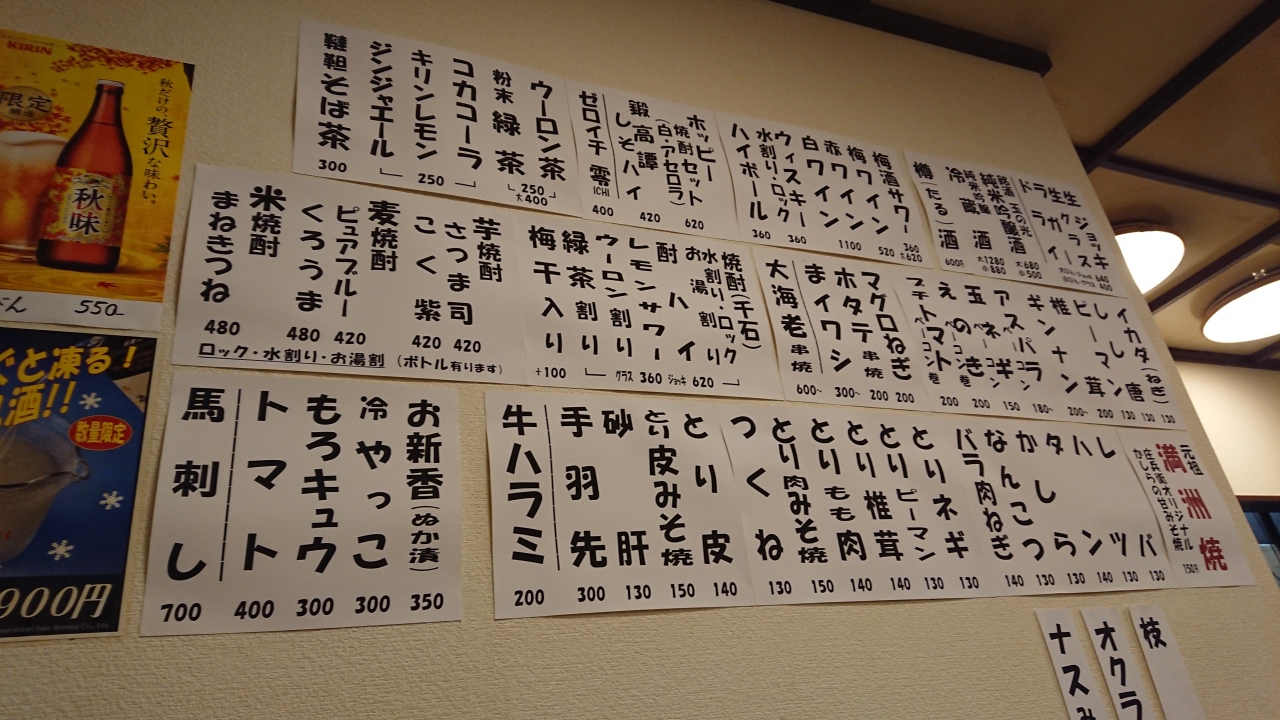 KIRIN
限定
秋だけの、贅沢な味わい。
秋味
550-
と凍る!
酒!!
数量限定
900円
生ジョッキ
生グラス
ドライ
640
400
銘酒 玉の光
純米吟醸酒
大680
小500
大1280
小880
冷蔵酒
樽(たる)酒
600円
梅酒サワー
360
大620
梅ワイン 520
赤ワイン
白ワイン
1100
ウィスキー
水割り・ロック 360
ハイボール 360
ホッピー
焼酎セット
(白・アセロラ) 620
鍛高譚
しそハイ 420
ゼロイチ 零ICHI 400
ウーロン茶
粉末 緑茶
250
大400
コカコーラ
キリンレモン
ジンジャエール
250
韃靼そば茶 300
焼酎(千石)
水割り・ロック
お湯割り
酎ハイ
レモンサワー
ウーロン割り
緑茶割り
グラス 360 ジョッキ 620
梅干入り +100
芋焼酎
さつま司 420
こく紫 420
麦焼酎
ピュアブルー 420
くろうま 480
米焼酎
まねきつね 480
ロック・水割り・お湯割 (ボトル有ります)
イカダ(ねぎ) 130
しし唐 130
ピーマン 130
椎茸 200
ギンナン 200~
アスパラ 180~
ネギ 150
玉ねぎ
えのき ベーコン巻 200
プチトマト ベーコン巻 200
マグロねぎ串焼 200
ホタテ串焼 200
まイワシ 300~
大海老串焼 600~
元祖
満洲焼
庄兵衛オリジナル
かしらの甘みそ焼
150円
レバ 130
ハツ 130
タン 140
かしら 130
なんこつ 130
バラ肉ねぎ 140
とりネギ 130
とりピーマン 130
とり椎茸 140
とりもも肉 140
とり肉みそ焼 150
つくね 130
とり皮 140
とり皮みそ焼 150
砂肝 130
手羽先 300
牛ハラミ 200
お新香(ぬか漬) 350
冷やっこ 300
もろキュウ 300
トマト 400
馬刺し 700
枝
オクラ
ナスみ